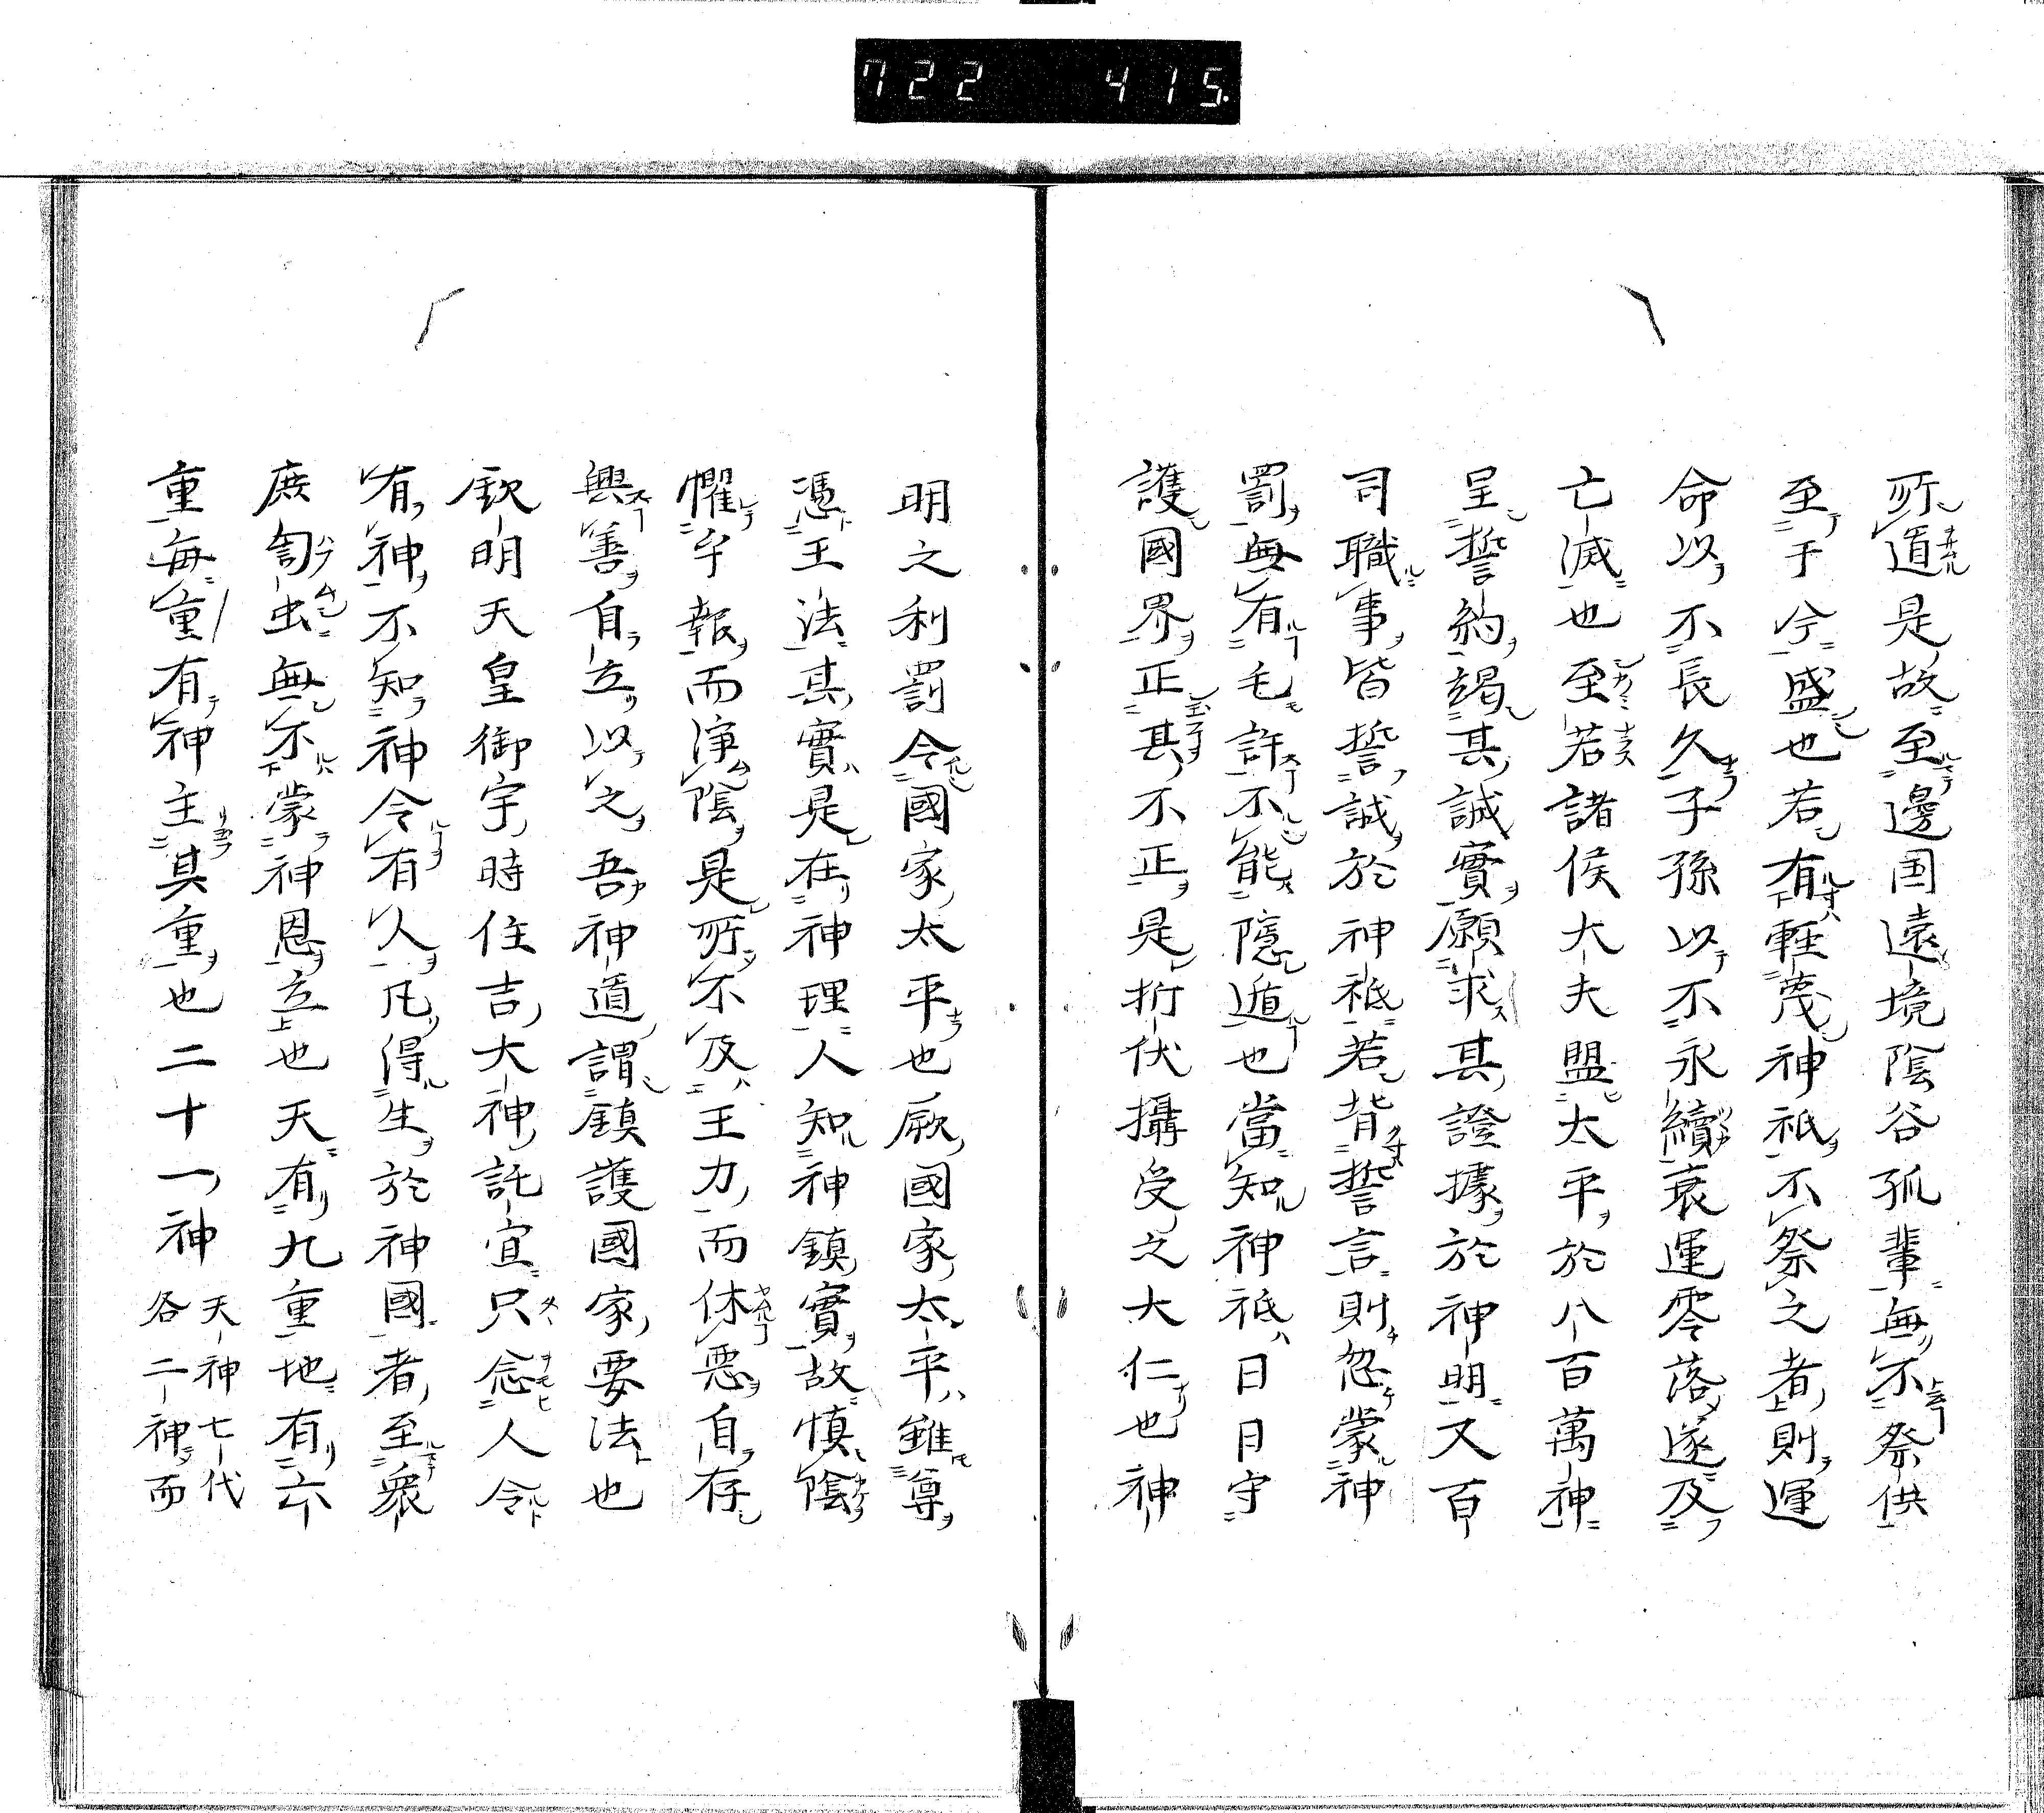 722 415.
所道是故至邊国遠境陰谷孤輩無不祭供
至于今盛也若有軽蔑神祇不祭之者則運
命以不長久子孫以不永續衰運零落遂及
亡滅也至若諸侯大夫盟太平於八百萬神
呈誓約竭其誠實願求其證據於神明又百
司職事皆誓誠於神祇若背誓言則忽蒙神
罰無有毛許不能隱遁也當知神祇日日守
護國界正其不正是折伏攝受之大仁也神
明之利罰令國家太平也厥國家太平雖尊
憑王法其實是在神理人知神鎮實故慎陰
懼乎報而淨陰是所不及王力而休悪自存
興善自立以之吾神道謂鎮護國家要法也
欽明天皇御宇時住吉大神託宣只念人令
有神不知神令有人凡得生於神國者至衆
庶匐虫無不蒙神恩立也天有九重地有六
重毎重有神主其重也二十一神天神七代
各二神而